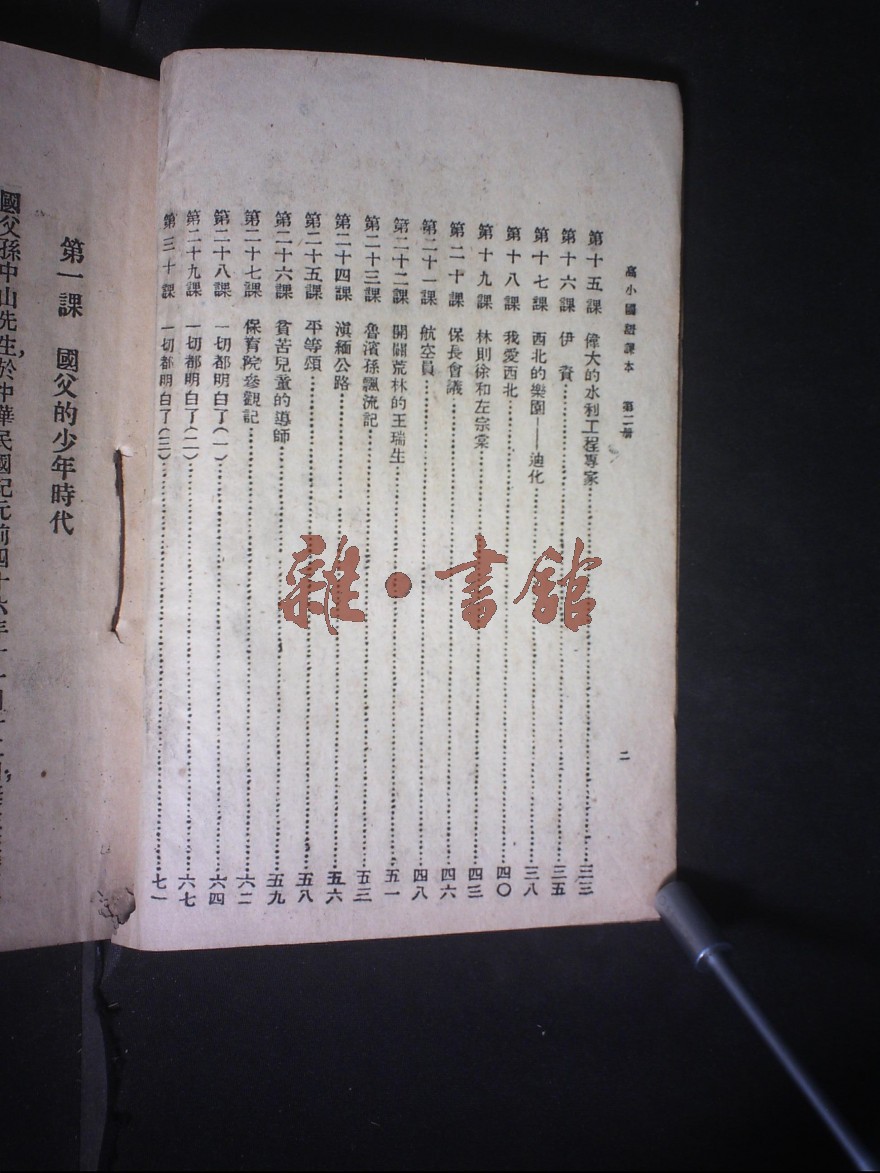 高小國語課本 第二册
二
第十五課 偉大的水利工程專家……三三
第十六課 伊 賚……三五
第十七課 西北的樂園——迪化……三八
第十八課 我愛西北……四〇
第十九課 林則徐和左宗棠……四三
第二十課 保長會議……四六
第二十一課 航空員……四八
第二十二課 開闢荒林的王瑞生……五一
第二十三課 魯濱孫飄流記……五三
第二十四課 滇緬公路……五六
第二十五課 平等頌……五八
第二十六課 貧苦兒童的導師……五九
第二十七課 保育院參觀記……六二
第二十八課 一切都明白了(一)……六四
第二十九課 一切都明白了(二)……六七
第三十課 一切都明白了(三)……七一
第一課 國父的少年時代
國父孫中山先生,於中華民國紀元前四十六年十一月十二日,
雜·書館